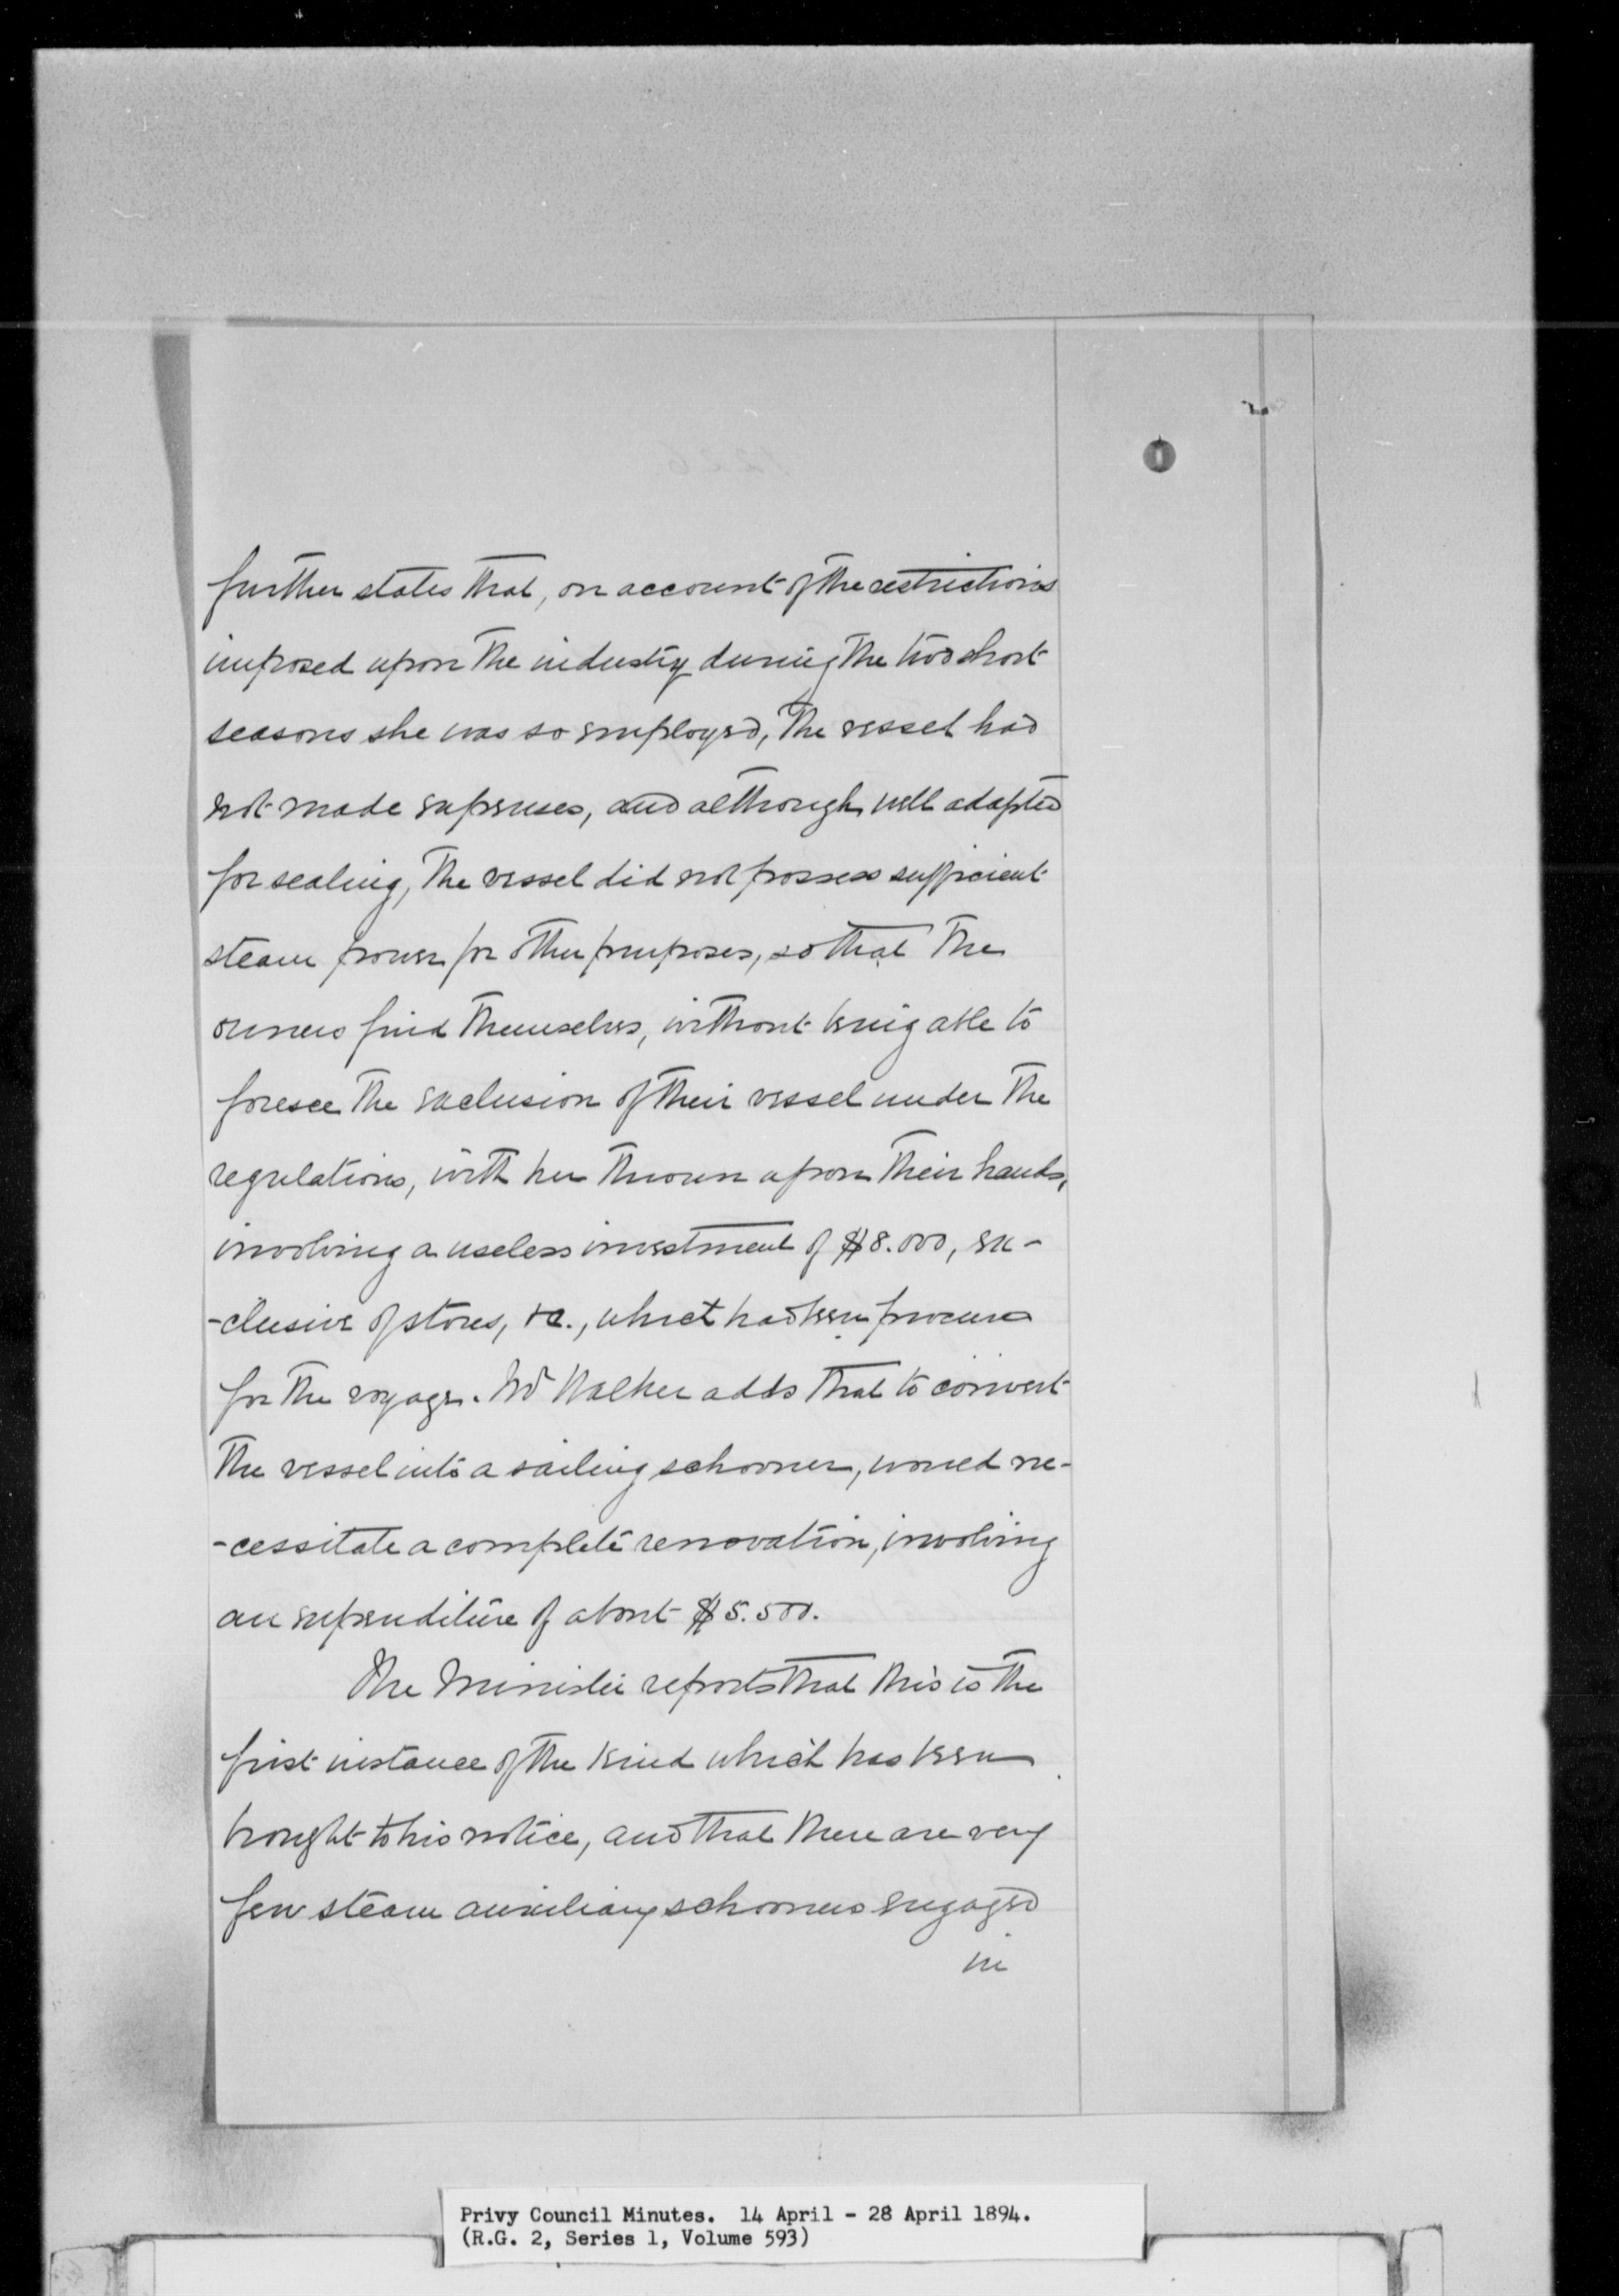 further states that, on account of the restrictions
imposed upon the industry during the two short
seasons she was so employed, the vessel had
not made expenses, and although well adapted
for sealing, the vessel did not possess sufficient
steam power for other purposes, so that the
owners find themselves, without being able to
foresee the exclusion of their vessel under the
regulations, with her thrown upon their hands,
involving a useless investment of $8.000, ex-
-clusive of stores, &c., which had been procured
for the voyage. Mr Walker adds that to convert
the vessel into a sailing schooner, would ne-
-cessitate a complete renovation, involving
an expenditure of about $5.500.
The Minister reports that this is the
first instance of the kind which has been
brought to his notice, and that there are very
few steam auxiliary schooners engaged
in
Privy Council Minutes. 14 April - 28 April 1894.
(R.G. 2, Series 1, Volume 593)